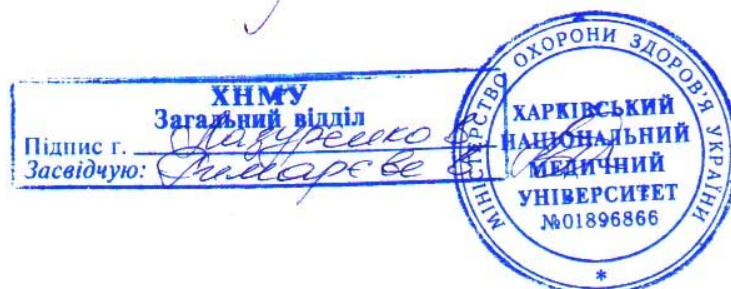 ХНМУ
Загальний відділ
Підпис г. Лазуренко В
Засвідчую:
МІНІСТЕРСТВО ОХОРОНИ ЗДОРОВ'Я УКРАЇНИ
ХАРКІВСЬКИЙ
НАЦІОНАЛЬНИЙ
МЕДИЧНИЙ
УНІВЕРСИТЕТ
№01896866
*